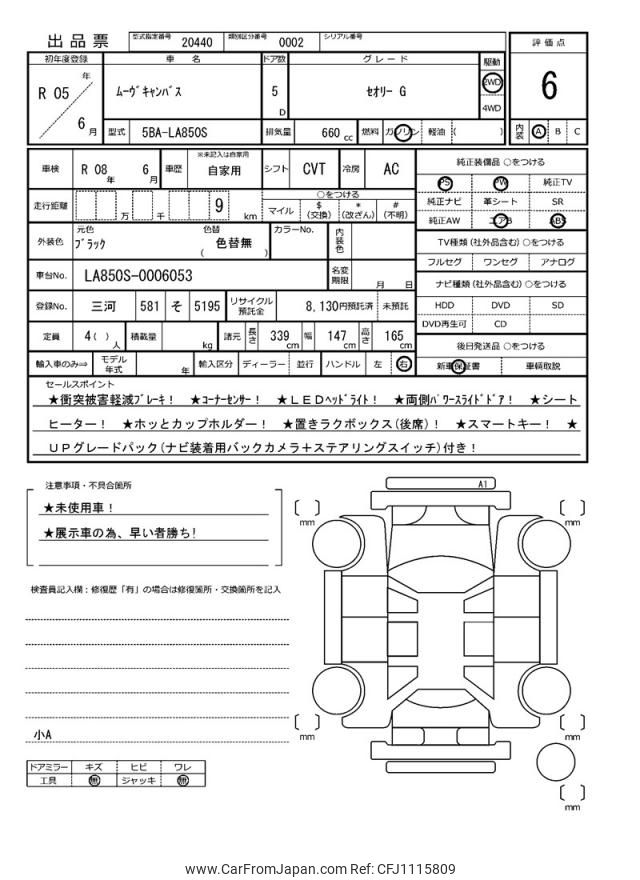 出品票 型式指定番号 20440 類別区分番号 0002 シリアル番号
初年度登録 車名 ドア数 グレード 駆動 評価点
R 05 年 6 月 ムーヴキャンバス 5 D セオリー G 2WD 4WD 6
型式 5BA-LA850S 排気量 660 cc 燃料 ガソリン 軽油 ( ) 内装 A B C
車検 R 08 年 6 月 車歴 ※未記入は自家用 自家用 シフト CVT 冷房 AC
走行距離 万 千 9 km ○をつける
マイル $(交換) *(改ざん) #(不明)
外装色 元色 ブラック 色替 ( 色替無 ) カラーNo. 内装色
車台No. LA850S-0006053 名変期限 月 日
登録No. 三河 581 そ 5195 リサイクル預託金 8,130円預託済 未預託
定員 4( )人 積載量 kg 諸元 長さ 339 cm 幅 147 cm 高さ 165 cm
輸入車のみ⇒ モデル年式 年 輸入区分 ディーラー 並行 ハンドル 左 右
純正装備品 ○をつける
PS PW 純正TV
純正ナビ 革シート SR
純正AW エアB ABS
TV種類 (社外品含む) ○をつける
フルセグ ワンセグ アナログ
ナビ種類 (社外品含む) ○をつける
HDD DVD SD
DVD再生可 CD
後日発送品 ○をつける
新車保証書 車輌取説
セールスポイント
★衝突被害軽減ブレーキ! ★コーナーセンサー! ★LEDヘッドライト! ★両側パワースライドドア! ★シート
ヒーター! ★ホッとカップホルダー! ★置きラクボックス(後席)! ★スマートキー! ★
UPグレードパック(ナビ装着用バックカメラ+ステアリングスイッチ)付き!
注意事項・不具合箇所
★未使用車!
★展示車の為、早い者勝ち!
検査員記入欄:修復歴「有」の場合は修復箇所・交換箇所を記入
小A
ドアミラー キズ ヒビ ワレ
工具 無 ジャッキ 無
A1
[ ] mm
[ ] mm
[ ] mm
[ ] mm
[ ] mm
www.CarFromJapan.com Ref: CFJ1115809